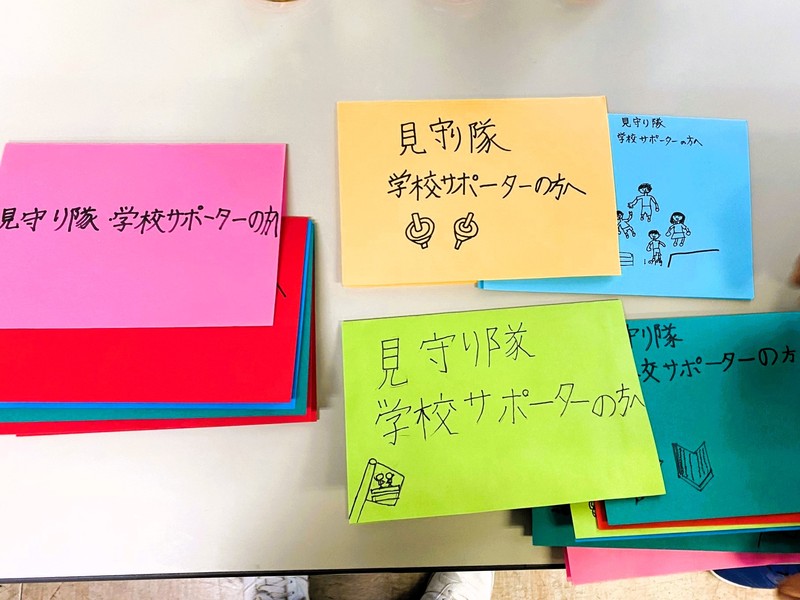 見守り隊・学校サポーターの方
見守り隊
学校サポーターの方へ
見守り隊
学校サポーターの方へ
見守り隊
学校サポーターの方へ
守り隊
校サポーターの方